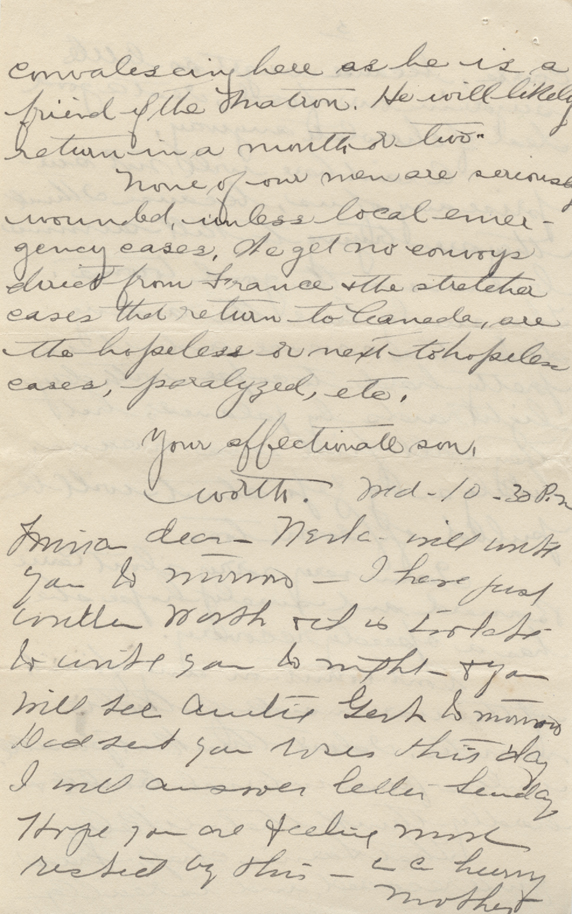 convalescing here as he is a
friend of the Matron. He will likely
return in a month or two."
None of our men are seriously
wounded, unless local emer-
gency cases, We get no convoys
direct from France & the stretcher
cases that return to Canada, are
the hopeless or next-to hopeless
cases, paralyzed, etc.
Your affectionate son,
Worth. Wed-10-30 P.m
dear - will write
you to morrow - I have just
written Worth & it is too late
to write you to night - & you
will see Auntie Gert to morrow
Dad sent you this day
I will answer letter Sunday
Hope you are feeling more
rested by this - in a hurry
Mother